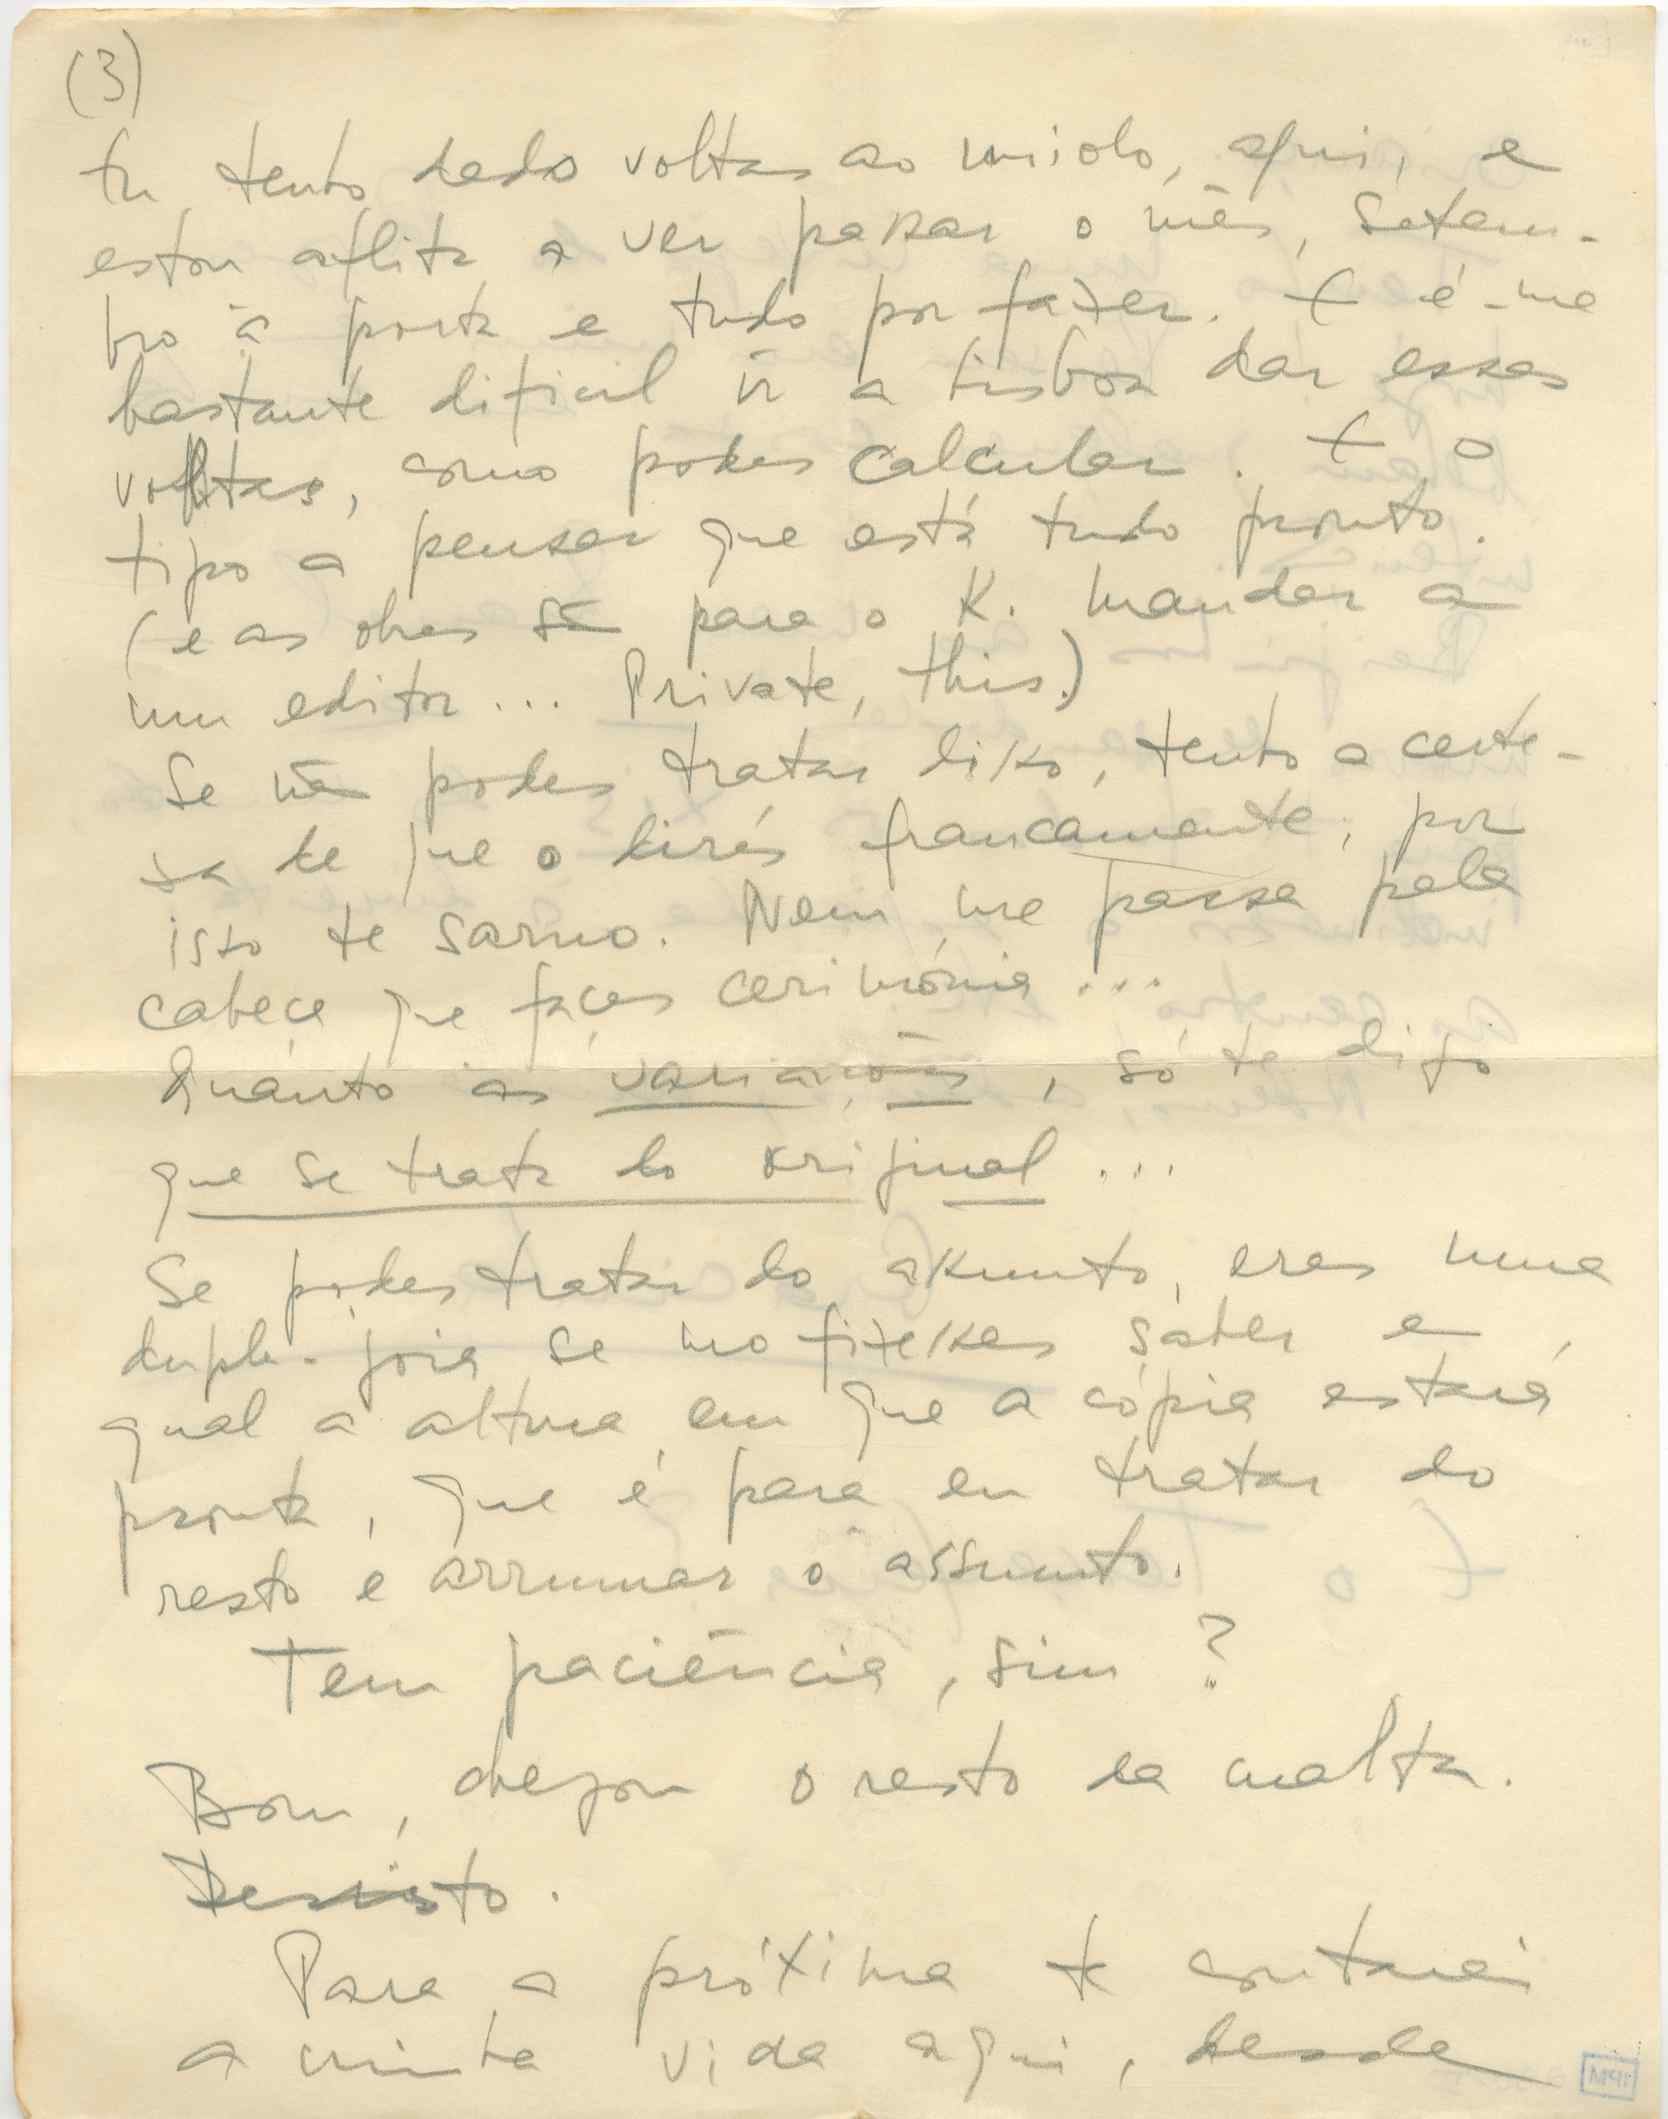 (3)
Eu tenho dado voltas ao miolo, aqui, e
estou aflita a ver passar o mês, Setem-
bro à porta e tudo por fazer. E é-me
bastante difícil ir a Lisboa dar essas
voltas, como podes calcular. E o
tipo a pensar que está tudo pronto.
(e as obras são para o K. mandar a
um editor... Private, this.)
Se não podes tratar disso, tenho a certe-
za de que o dirás francamente, por
isso te sarno. Nem me passa pela
cabeça que faças cerimónia...
Quanto às variações, só te digo
que se trata do original...
Se podes tratar do assunto, eras uma
dupla-jóia se mo fizesses saber e
qual a altura em que a cópia estará
pronta, que é para eu tratar do
resto e arrumar o assunto.
Tem paciência, sim?
Bom, chegou o resto da malta.
Desisto.
Para a próxima te contarei
a minha vida aqui, desde